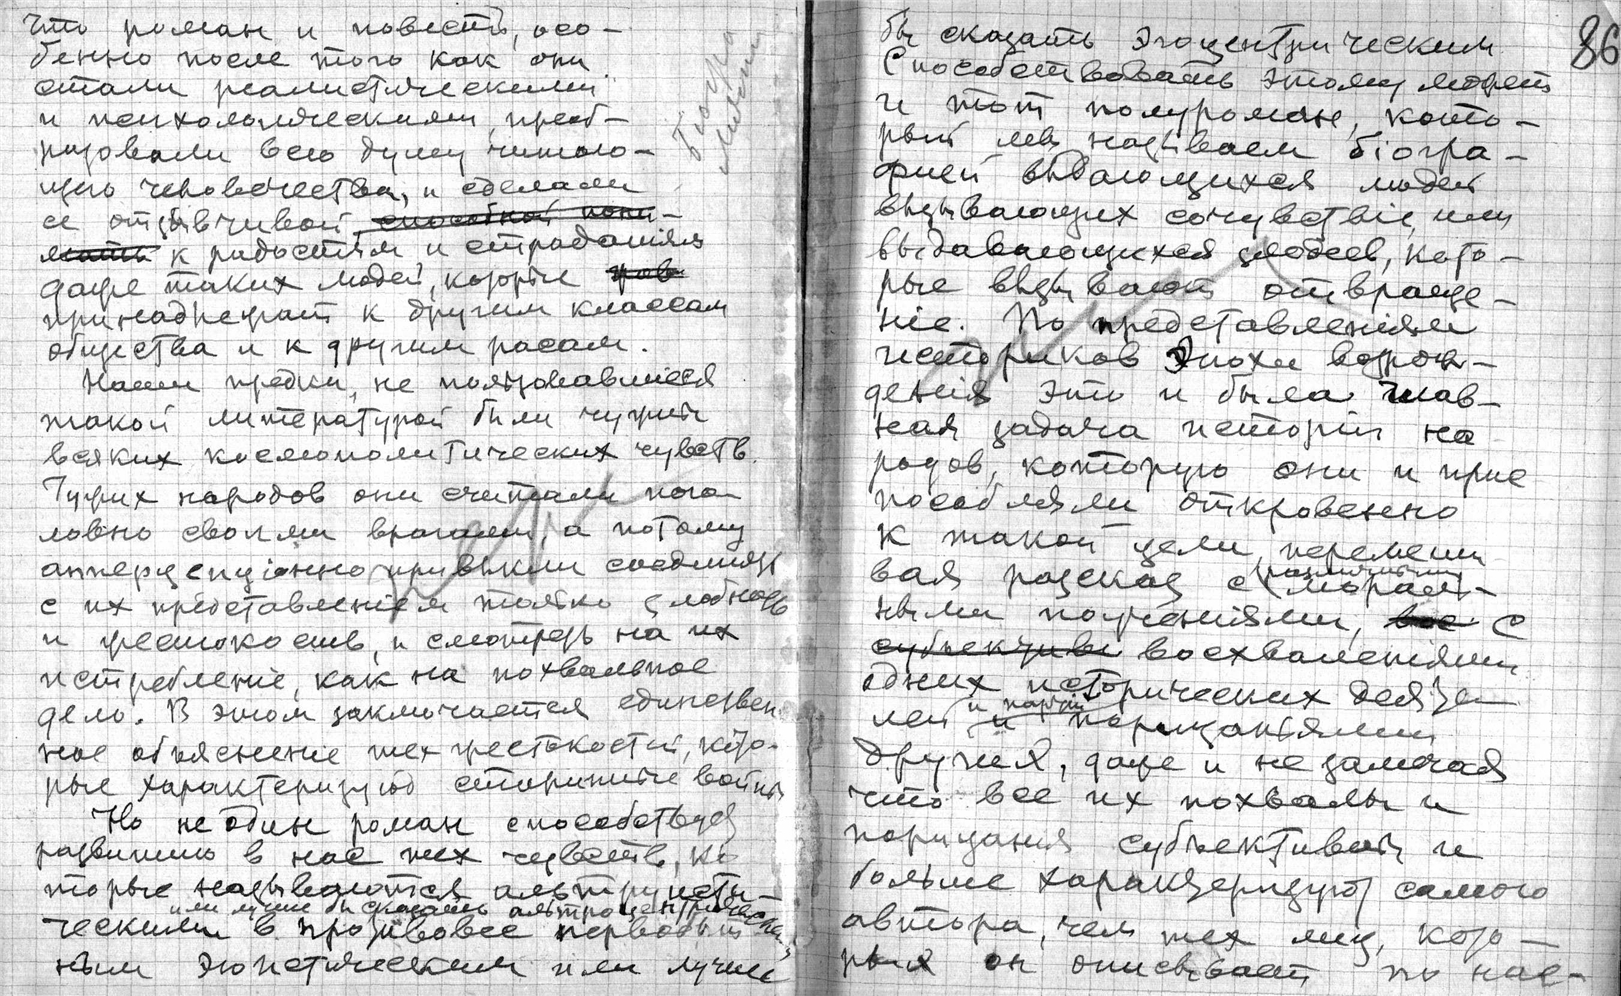 что роман и повесть, осо-
бенно после того как они
стали реалистическими
и психологическими, преоб-
разовали всю душу читаю-
щего человечества, и сделали
ее отзывчивой способной пони-
мать к радостям и страданіям
даже таких людей, которые
принадлежат к другим классам
общества и к другим расам.
Наши предки, не пользовавшіеся
такой литературой были чужды
всяких космополитических чувств.
Чужих народов они считали пого-
ловно своими врагами, а потому
апперцепціонно привыкли соединять
с их представленіем только злобность
и жестокость, и смотреть на их
истребленіе, как на похвальное
дело. В этом заключается единствен
ное объясненіе тех жестокостей, кото-
рые характеризуют старинные войны
Но не один роман способствует
развитию в нас тех чувств, ко
торые называются альтруисти-
или лучше бы сказать альтроцентрическими
ческими в противовес первобыт
ным эгоистическим или лучше
86
бы сказать эгоцентрическим
Способствовать этому может
и тот полуроман, кото-
рый мы называем біогра-
фией выдающихся людей
вызывающих сочувствіе, или
выдающихся злодеев, кото-
рые вызывают отвраще-
ніе. По представленіям
историков Эпохи возрож-
денія это и была глав-
ная задача исторіи на
родов, которую они и прис
пособляли откровенно
к такой цели, перемеши
вая разсказ с мораль-
различными
ными поученіями, все с
субъективн восхваленіями
одних исторических деяте
лей и порицаніями
и партій
других, даже и не замечая
что все их похвалы и
порицания субъективны и
больше характеризуют самого
автора, чем тех лиц, кото-
рых он описывает по нас-